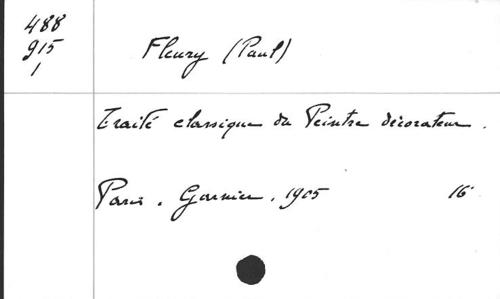 488
915
1
Fleury (Paul)
Traité classique du Peintre décorateur.
Paris. Garnier. 1905 16°